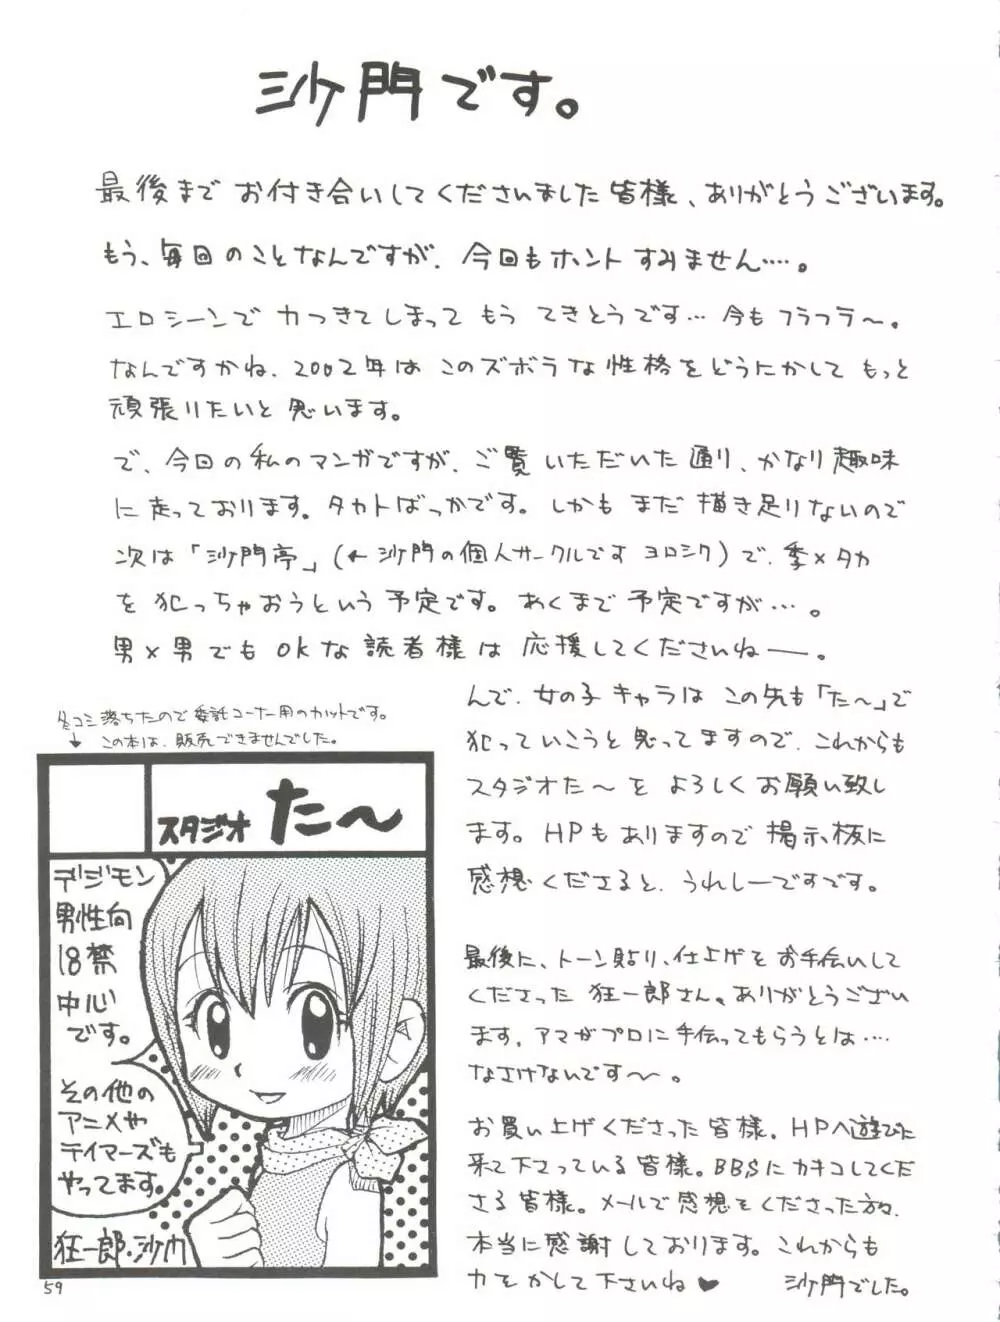 沙門です。
最後まで お付き合いしてくださいました皆様、ありがとうございます。
もう、毎回のことなんですが、今回もホントすみません……。
エロシーンで力つきてしまってもうてきとうです…今もフラフラ～。
なんですかね、2002年はこのズボラな性格をどうにかしてもっと
頑張りたいと思います。
で、今回の私のマンガですが、ご覧いただいた通り、かなり趣味
に走っております。タカトばっかです。しかもまだ描き足りないので
次は「沙門亭」(←沙門の個人サークルです ヨロシク)で、季×タカ
を犯っちゃおうという予定です。あくまで予定ですが…。
男×男でもOKな読者様は応援してくださいねー。
んで、女の子キャラはこの先も「た～」で
犯っていこうと思ってますので、これからも
スタジオた～をよろしくお願い致し
ます。HPもありますので掲示板に
感想くださると、うれしーですです。
最後に、トーン貼り、仕上げをお手伝いして
くださった狂一郎さん。ありがとうござい
ます。アマがプロに手伝ってもらうとは……
なさけないです～。
お買い上げくださった皆様。HPへ遊びに
来て下さっている皆様。BBSにカキコしてくだ
さる皆様。メールで感想をくださった方々、
本当に感謝しております。これからも
力をかして下さいね♥
沙門でした。
冬コミ落ちたので委託コーナー用のカットです。
↓この本は、販売できませんでした。
スタジオ た～
デジモン
男性向
18禁
中心
です。
その他の
アニメや
テイマーズも
やってます。
狂一郎・沙門
59